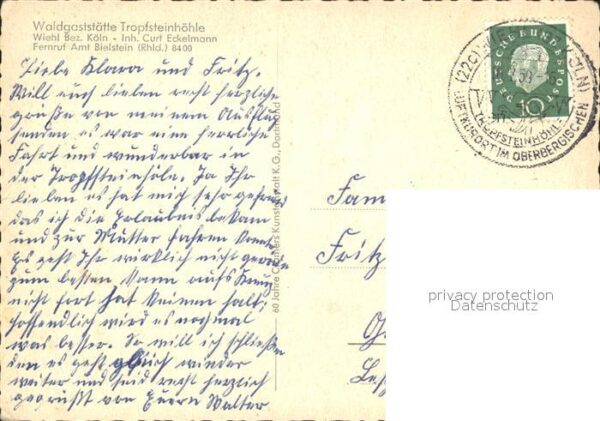 Waldgaststätte Tropfsteinhöhle
Wiehl Bez. Köln - Inh. Curt Eckelmann
Fernruf Amt Bielstein (Rhld.) 8400
Liebe Klara und Fritz.
Will euch lieben recht herzliche
grüße von meinem Ausflug
senden es war eine herrliche
Fahrt und wunderbar in
der Tropfsteinhöle. Ja Ihr
lieben es hat mich sehr gefreud
das ich die Erlaubnis bekam
und zur Mutter fahren konnte
Es geht Ihr wirklich nicht gerade
zum besten Wann aufs
nicht fort hat keinen halt,
hoffendlich wird es nogmal
was besser. So will ich schließen
den es geht gleich wieder
weiter und seid recht herzlich
gegrüßt von Euern Walter
60 Jahre Cramers Kunstanstalt K.G., Dortmund
DEUTSCHE BUNDESPOST
10
(22c) WIEHL (BZ KÖLN)
TROPFSTEINHÖHLE
LUFTKURORT IM OBERBERGISCHEN
Fam
Fritz
privacy protection
Datenschutz